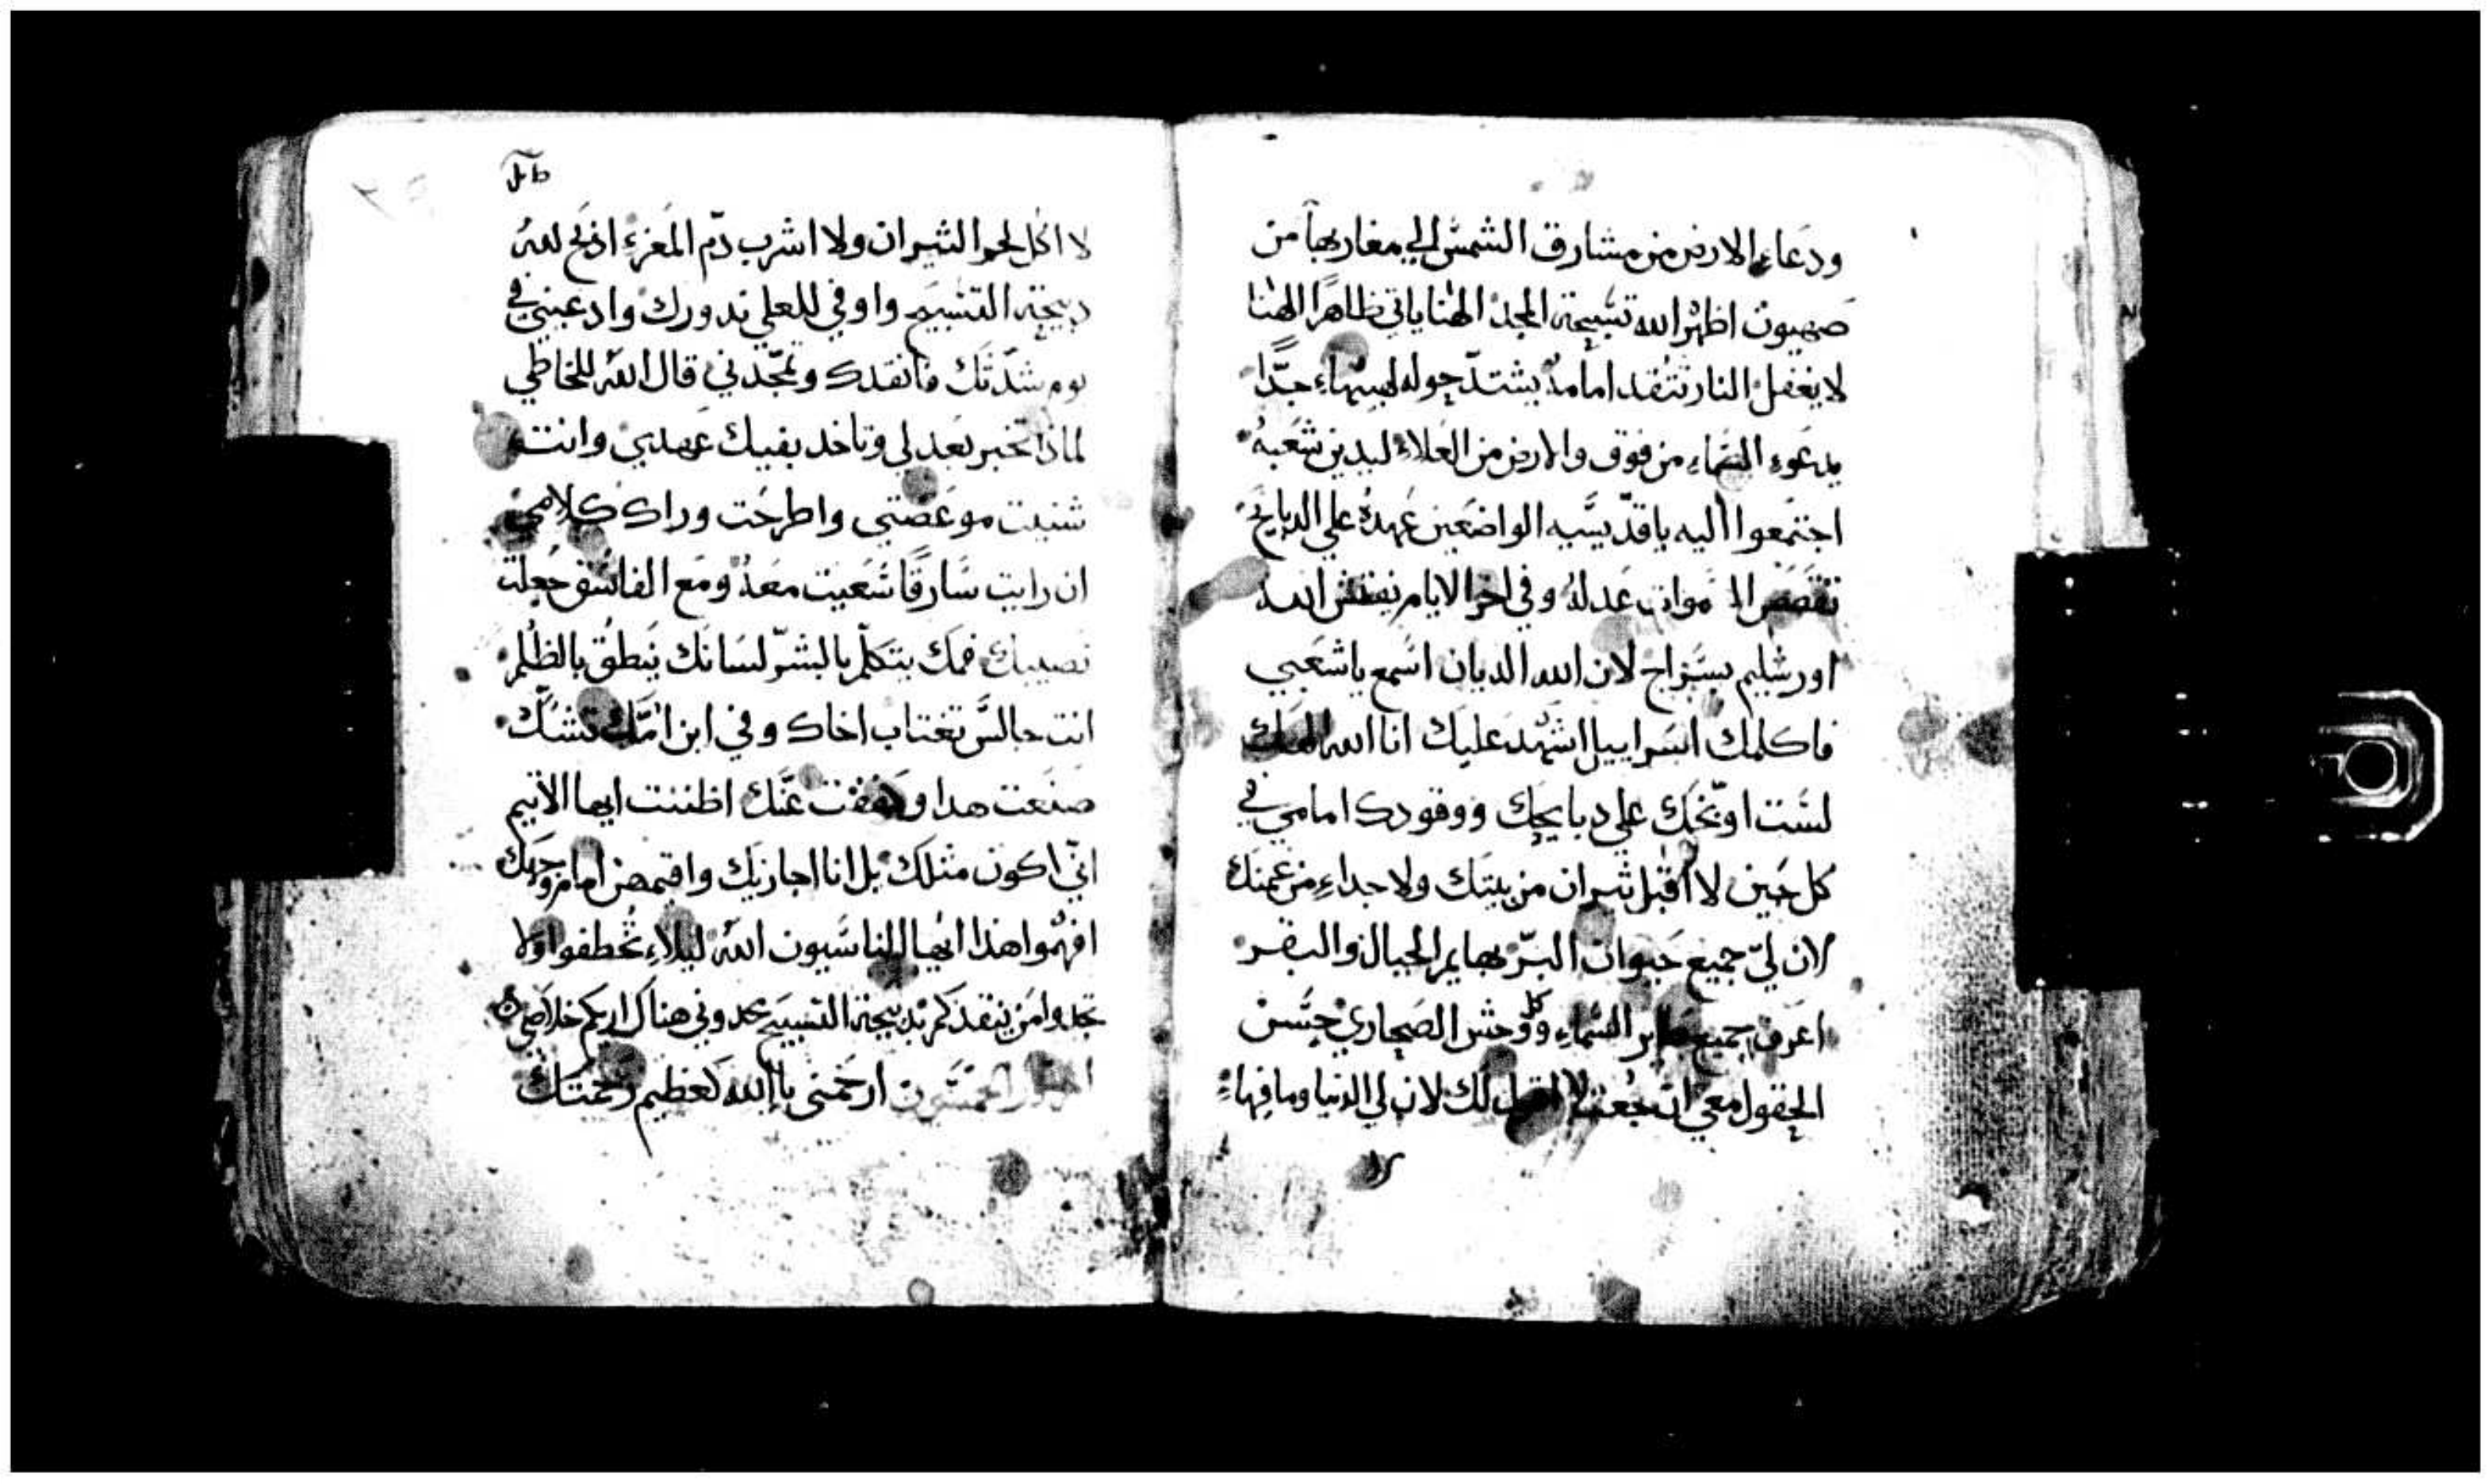 ودعاء الارض من مشارق الشمس الي مغاربها من
صهيون اظهر الله تسبيحة المجد الهنا ياتي ظاهرًا الهنا
لا يغفل النار تتقد امامه يشتد حوله لهيبهاء جدًّا
يدعوء السماء من فوق والارض من العلاء ليدين شعبه
اجتمعوا اليه يا قديسيه الواضعين عهده علي الدبايح
عدله وفي اخر الايام يفتش الله
اورشليم بسراج لان الله الديان اسمع يا شعبي
فاكلمك اسراييل اشهد عليك انا الله الهك
لست اوبخك علي دبايحك ووقودك امامي في
كل حين لا اقبل ثيران من بيتك ولا جداء من غمنك
لان لي جميع حيوان البر بهايم الجبال والبقر
اعرف جميع طاير السماء وكل وحش الصحاري حسن
الحقول معي ان جعت لا اقول لك لان لي الدنيا وما فيهاء
لا اكل لحم الثيران ولا اشرب دم المعزء اذبح لله
دبيحة التسبيح واوفي للعلي ندورك وادعيني في
يوم شدتك فانقدك وتمجدني قال الله للخاطي
لماذا تخبر بعدلي وتاخد بفيك عهدي وانت
شنيت موعضتي واطرحت وراك كلامي
ان رايت سارقًا سعيت معه ومع الفاسق جعلت
نصيبك فمك يتكلم بالشر لسانك ينطق بالظلم
انت جالس تغتاب اخاك وفي ابن امك تشك
صنعت هدا عنك اظننت ايها الاثيم
اني اكون مثلك بل انا اجازيك واقمص امام وجهك
افهموا هذا ايها الناسيون الله ليلاء تخطفوا ولا
تجدوا من ينقذكم بدبيحة التسبيح مجدوني هناك اريكم خلاصي
ارحمني يا الله كعظيم رحمتك